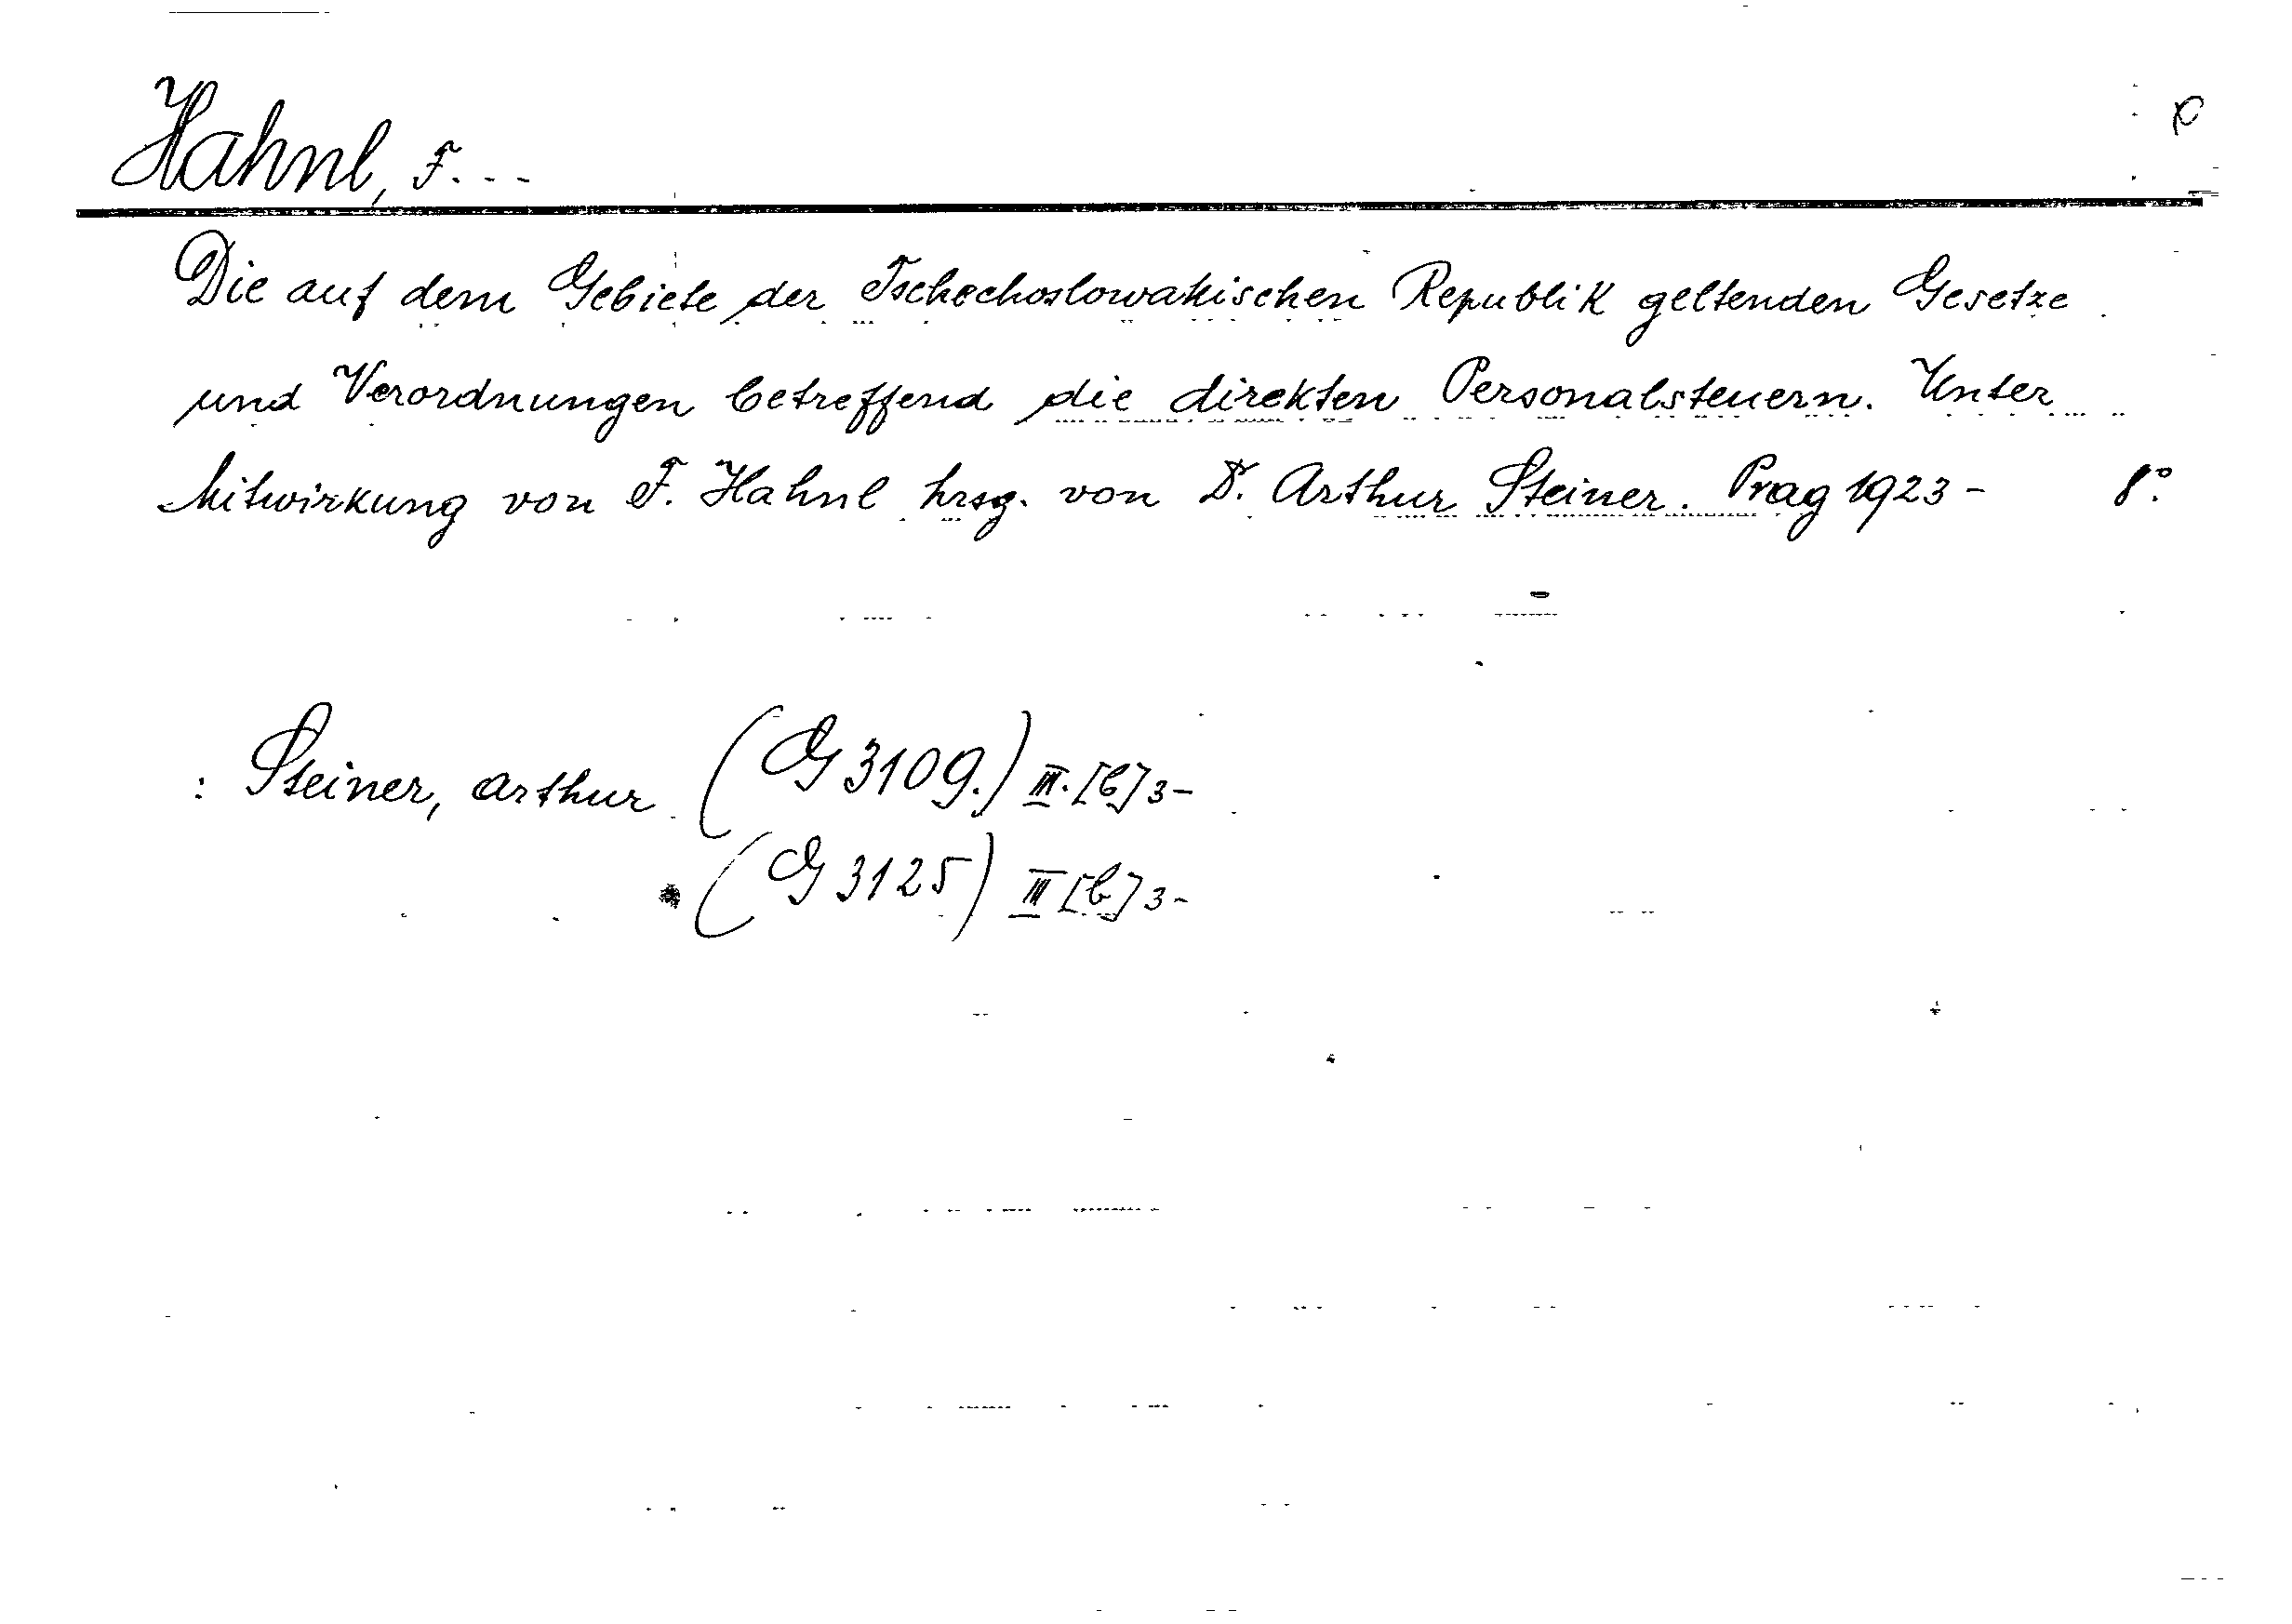 Hahnl, F. - -
Die auf dem Gebiete der Tschechoslowakischen Republik geltenden Gesetze
und Verordnungen betreffend die direkten Personalsteuern. Unter
Mitwirkung von F. Hahnl hrsg. von D. Arthur Steiner. Prag 1923 - 8°.
: Steiner, Arthur (G 3109.) III. [b] 3-
(G 3125) III [b] 3-